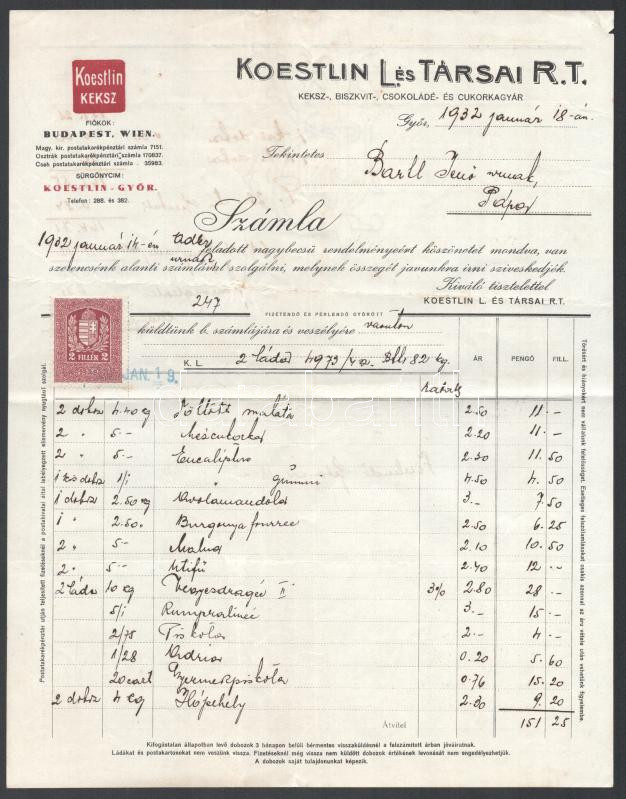 Koestlin
KEKSZ
KOESTLIN L. ÉS TÁRSAI R.T.
KEKSZ-, BISZKVIT-, CSOKOLÁDÉ- ÉS CUKORKAGYÁR
FIÓKOK:
BUDAPEST, WIEN.
Magy. kir. postatakarékpénztári számla 7151.
Osztrák postatakarékpénztári számla 170837.
Cseh postatakarékpénztári számla . 35983.
SÜRGÖNYCIM:
KOESTLIN-GYŐR.
Telefon: 288. és 382.
Győr, 1932 január 18-án.
Tekintetes Bartl Jenő urnak,
Pápa
Számla
1932 január 14-én
feladott nagybecsü rendelményeért köszönetet mondva, van
szerencsénk alanti számlával szolgálni, melynek összegét javunkra irni sziveskedjék.
Kiváló tisztelettel
KOESTLIN L. ÉS TÁRSAI R.T.
247
FIZETENDŐ ÉS PERLENDŐ GYŐRÖTT
küldtünk b. számlájára és veszélyére vasuton
2 FILLÉR 2
JAN. 19.
K. L. 2 láda 4973/ 82 kg.
ÁR PENGŐ FILL.
2 doboz 4.40 kg Töltött maláta 2.50 11.-
2 " 5.- Mézcukorka 2.20 11.-
2 " 5.- Eucaliptus 2.30 11.50
1/1 " gummi 4.50 4.50
1 doboz 2.50 kg 3.- 7.50
1 " 2.50 " Burgonya fourree 2.50 6.25
2 " 5.- Malna 2.10 10.50
2 " 5.- Utifü 2.40 12.-
2 láda 10 kg Vegyesdragée II 3% 2.80 28.-
5/1 Rumpralinée 3.- 15.-
2/75 Piskota 2.- 4.-
1/28 Adria 0.20 5.60
20 cart Gyermekpiskóta 0.76 15.20
2 doboz 4 kg Hópehely 2.30 9.20
Átvitel 151 25
Kifogástalan állapotban levő dobozok 3 hónapon belüli bérmentes visszaküldésnél a felszámitott árban jóváiratnak.
Ládákat és postakartonokat nem veszünk vissza. Fizetéseknél még vissza nem küldött dobozok értékének levonását nem engedélyezhetjük.
A dobozok saját tulajdonunkat képezik.